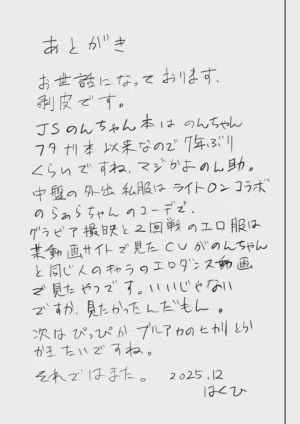 あとがき
お世話になっております、
剥皮です。
JSのんちゃん本はのんちゃん
フタナリ本以来なので7年ぶり
くらいですね、マジかよのん助。
中盤の外出私服はライトオンコラボ
のらぁらちゃんのコーデで、
グラビア撮影と2回戦のエロ服は
某動画サイトで見たCVがのんちゃん
と同じ人のキャラのエロダンス動画
で見たやつです。いいじゃない
ですか、見たかったんだもん。
次はぴっぴかブルアカのヒカリとか
かきたいですね。
それではまた。 2025.12
はくひ